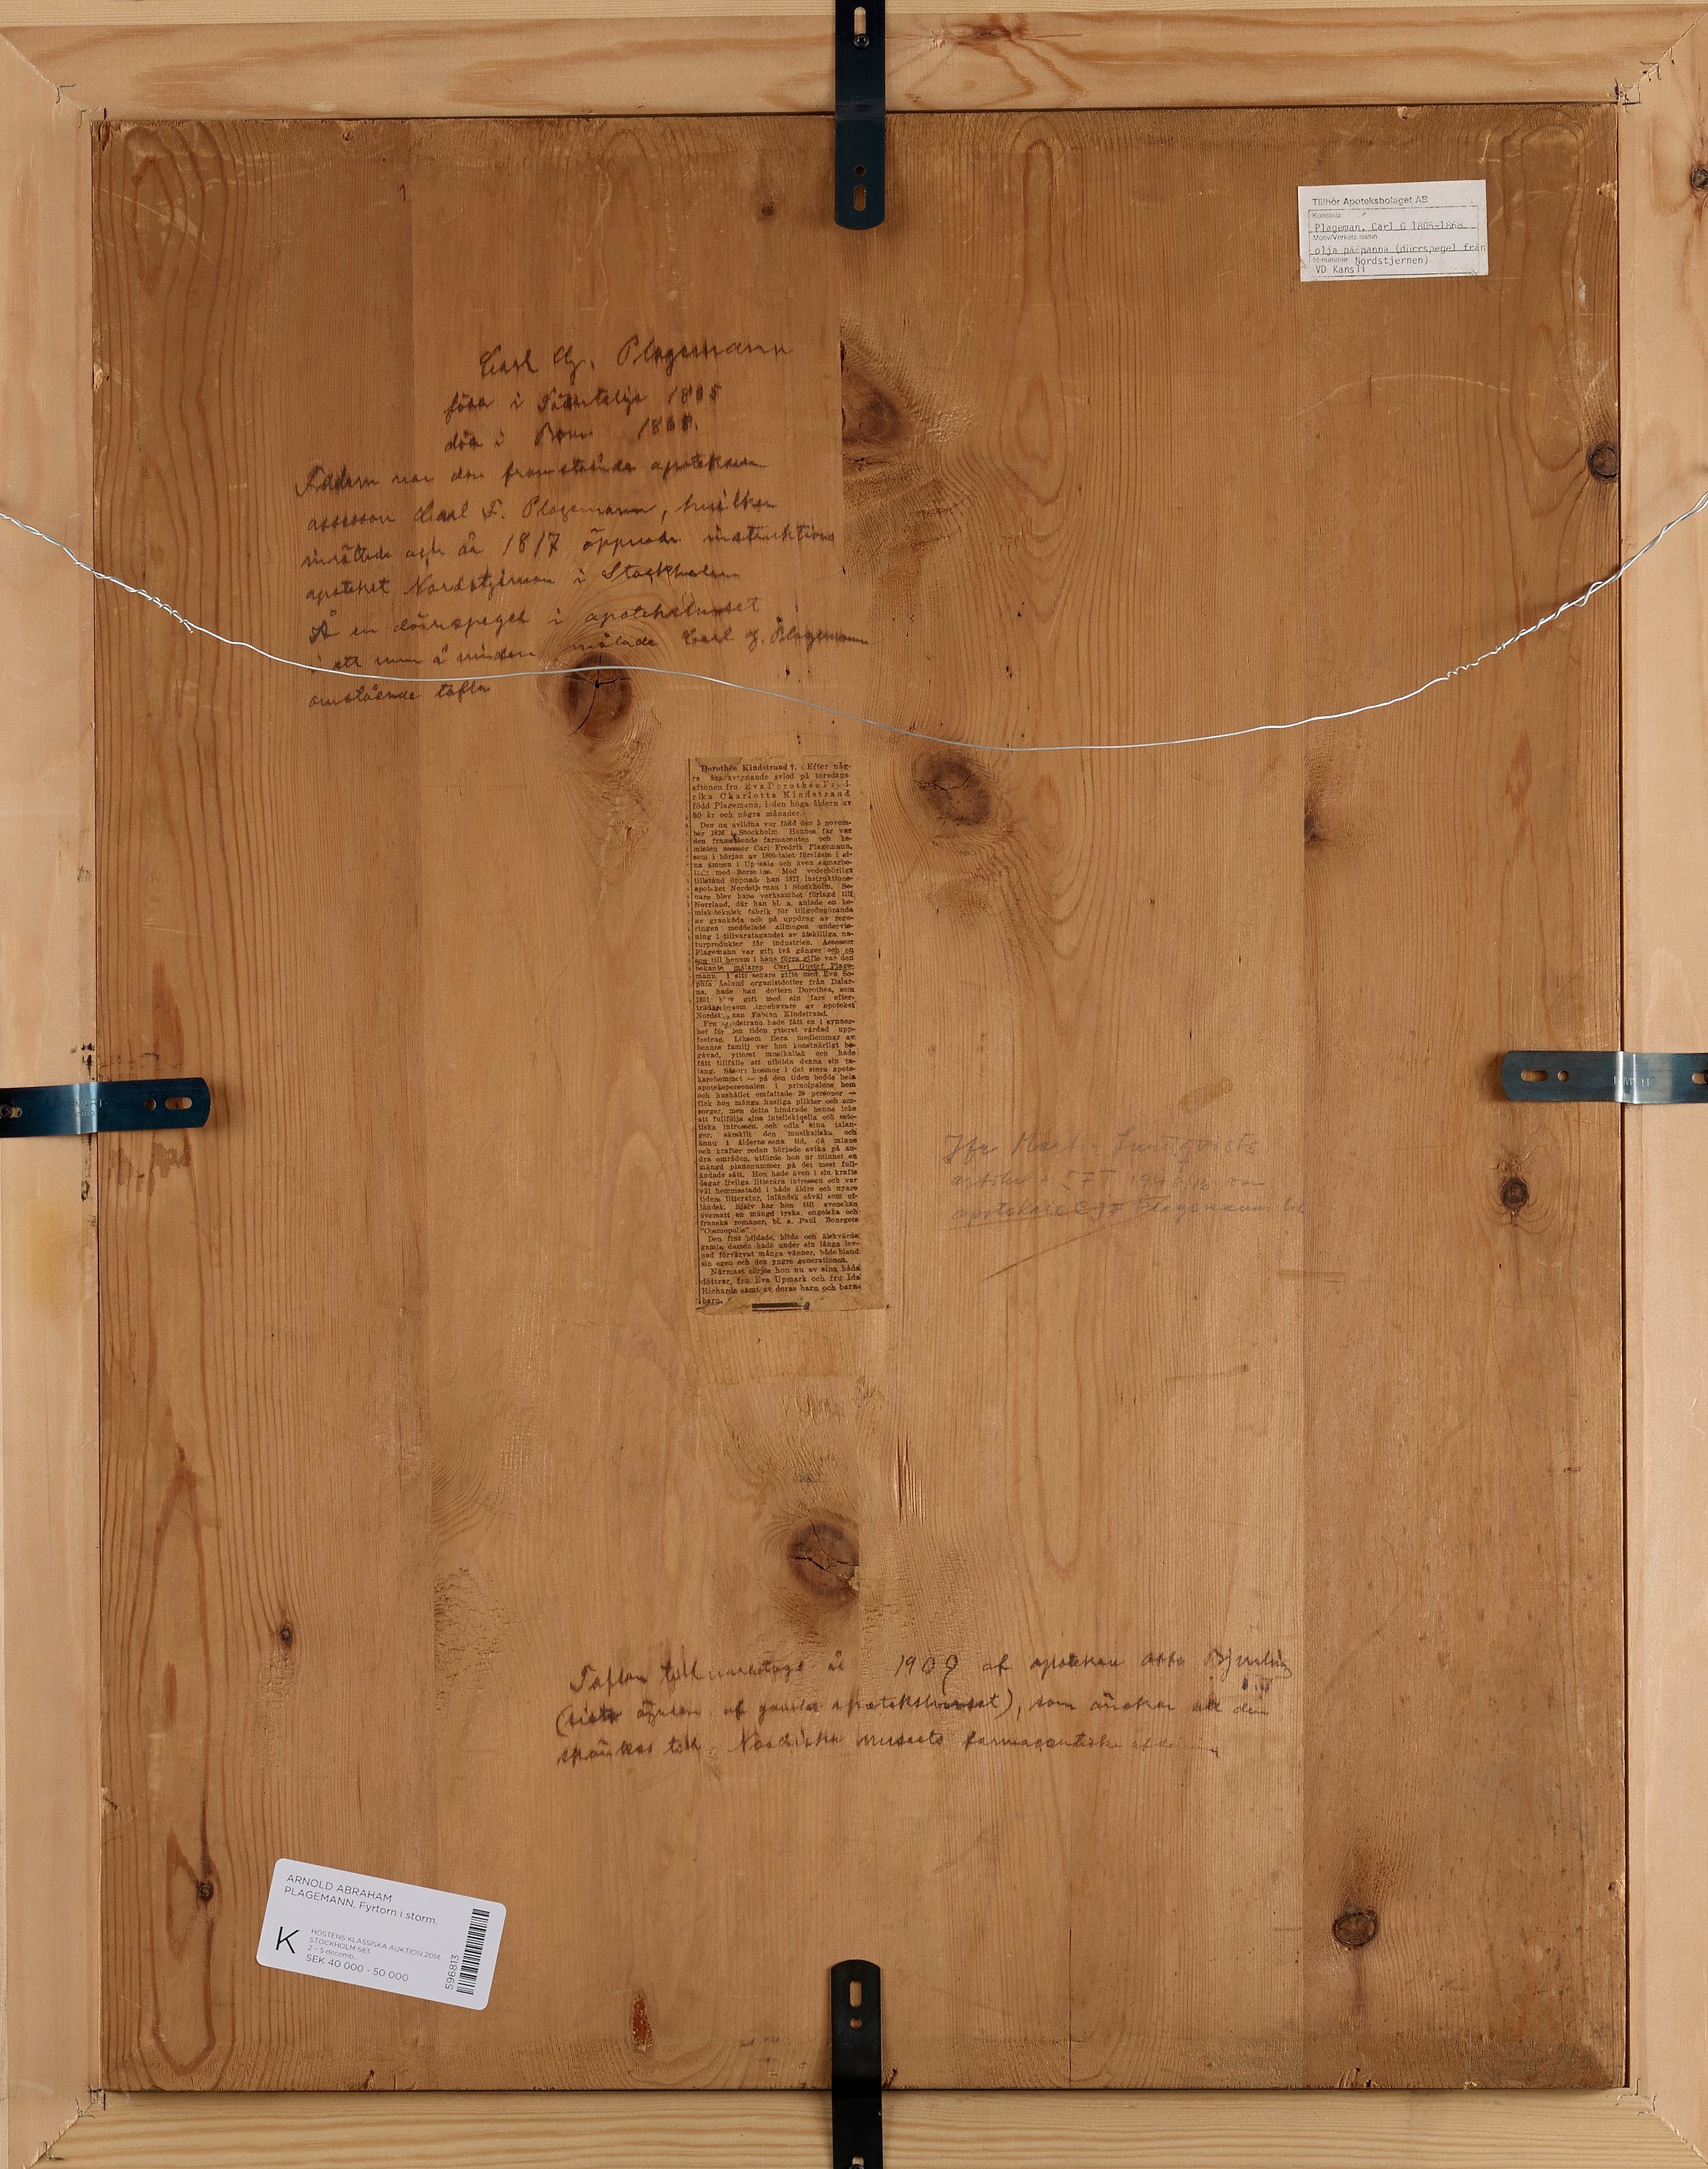 Tillhör Apoteksbolaget AB
Konstnär
Plageman, Carl G 1805-1868
Motiv/Verkets namn
olja på panna (dörrspegel från
Id-nummer Nordstjernen)
VD Kansli
Carl G. Plagemann
född i Södertelje 1805
död i Rom 1868.
Fadern var den framstående apotekaren
assessor Carl F. Plagemann, hvilken
inrättade och år 1817 öppnade instruktions
apoteket Nordstjernan i Stockholm
Å en dörrspegel i apotekshuset
i ett rum å vinden målade Carl G. Plagemann
omstående tafla
Dorothée Kindstrand †. Efter någ-
ra års avtynande avled på torsdags
aftonen fru Eva Dorothea Fred
rika Charlotta Kindstrand
född Plagemann, i den höga åldern av
90 år och några månader.
Den nu avlidna var född den 5 novem-
ber 1826 i Stockholm. Hennes far var
den framstående farmaceuten och ke-
misten assessor Carl Fredrik Plagemann,
som i början av 1800-talet föreläste i si-
na ämnen i Uppsala och även samarbe-
tade med Berzelius. Med vederbörligt
tillstånd öppnade han 1817 instruktions-
apoteket Nordstjernan i Stockholm. Se-
nare blev hans verksamhet förlagd till
Norrland, där han bl. a. anlade en ke-
misk-teknisk fabrik för tillgodogörande
av grankåda och på uppdrag av rege-
ringen meddelade allmogen undervis-
ning i tillvaratagandet av åtskilliga na-
turprodukter för industrien. Assessor
Plagemann var gift två gånger och en
son till honom i hans förra gifte var den
bekante målaren Carl Gustaf Plage-
mann. I sitt senare gifte med Eva So-
phia Åslund organistdotter från Dalar-
na, hade han dottern Dorothea, som
1851 blev gift med sin fars efter-
trädare som innehavare av apoteket
Nordstjernan Fabian Kindstrand.
Fru Kindstrand hade fått en i synner-
het för den tiden ytterst vårdad upp-
fostran. Liksom flera medlemmar av
hennes familj var hon konstnärligt be-
gåvad, ytterst musikalisk och hade
fått tillfälle att utbilda denna sin ta-
lang. Såsom husmor i det stora apote-
karehemmet — på den tiden bodde hela
apotekspersonalen i principalens hem
och hushållet omfattade 20 personer —
fick hon många husliga plikter och om-
sorger, men detta hindrade henne icke
att fullfölja sina intellektuella och este-
tiska intressen och odla sina talan-
ger, särskilt den musikaliska och
ännu i ålderns sena tid, då minne
och krafter redan började svika på an-
dra områden, utförde hon ur minnet en
mängd pianonummer på det mest full-
ändade sätt. Hon hade även i sin krafts
dagar livliga litterära intressen och var
väl hemmastadd i både äldre och nyare
tiders litteratur, inländsk såväl som ut-
ländsk. Själv har hon till svenskan
översatt en mängd tyska, engelska och
franska romaner, bl. a. Paul Bourgets
"Cosmopolis".
Den fint bildade, blida och älskvärda
gamla damen hade under sin långa lev-
nad förvärvat många vänner, både bland
sin egen och den yngre generationen.
Närmast sörjes hon nu av sina båda
döttrar, fru Eva Upmark och fru Ida
Richards samt av deras barn och barn-
barn.
Jfr
artikel i SFT 1948 om
apotekare C J F Plagemanns
Taflan tillvaratogs år 1909 af apotekare Otto Bjurling
(siste ägaren af gamla apotekshuset), som önskar att den
skänkes till Nordiska museets farmaceutiska afdelning
ARNOLD ABRAHAM
PLAGEMANN, Fyrtorn i storm.
K
HÖSTENS KLASSISKA AUKTION 2014,
STOCKHOLM 583
2 - 5 decemb...
SEK 40 000 - 50 000
596813